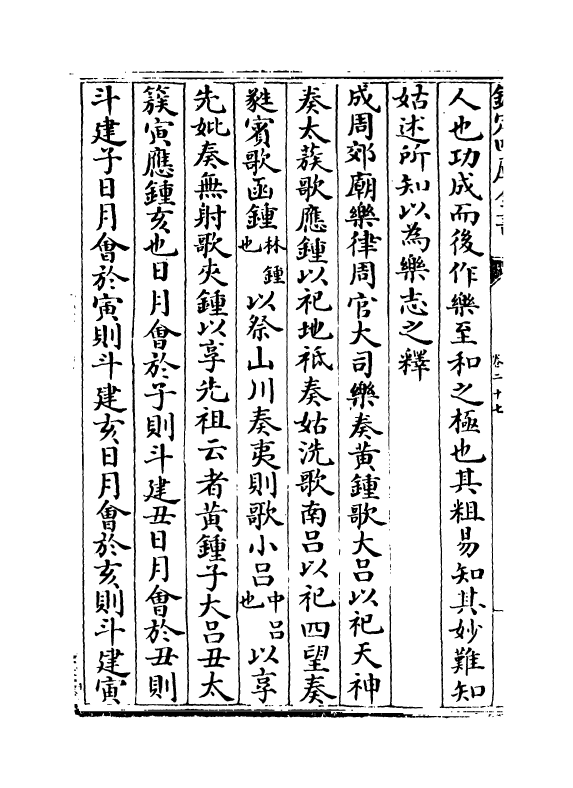 欽定四庫全書
卷二十七
人也功成而後作樂至和之極也其粗易知其妙難知
姑述所知以為樂志之釋
成周郊廟樂律周官大司樂奏黃鍾歌大呂以祀天神
奏太蔟歌應鍾以祀地祇奏姑洗歌南呂以祀四望奏
蕤賓歌函鍾林鍾也以祭山川奏夷則歌小呂中呂也以享
先妣奏無射歌夾鍾以享先祖云者黃鍾子大呂丑太
簇寅應鍾亥也日月會於子則斗建丑日月會於丑則
斗建子日月會於寅則斗建亥日月會於亥則斗建寅